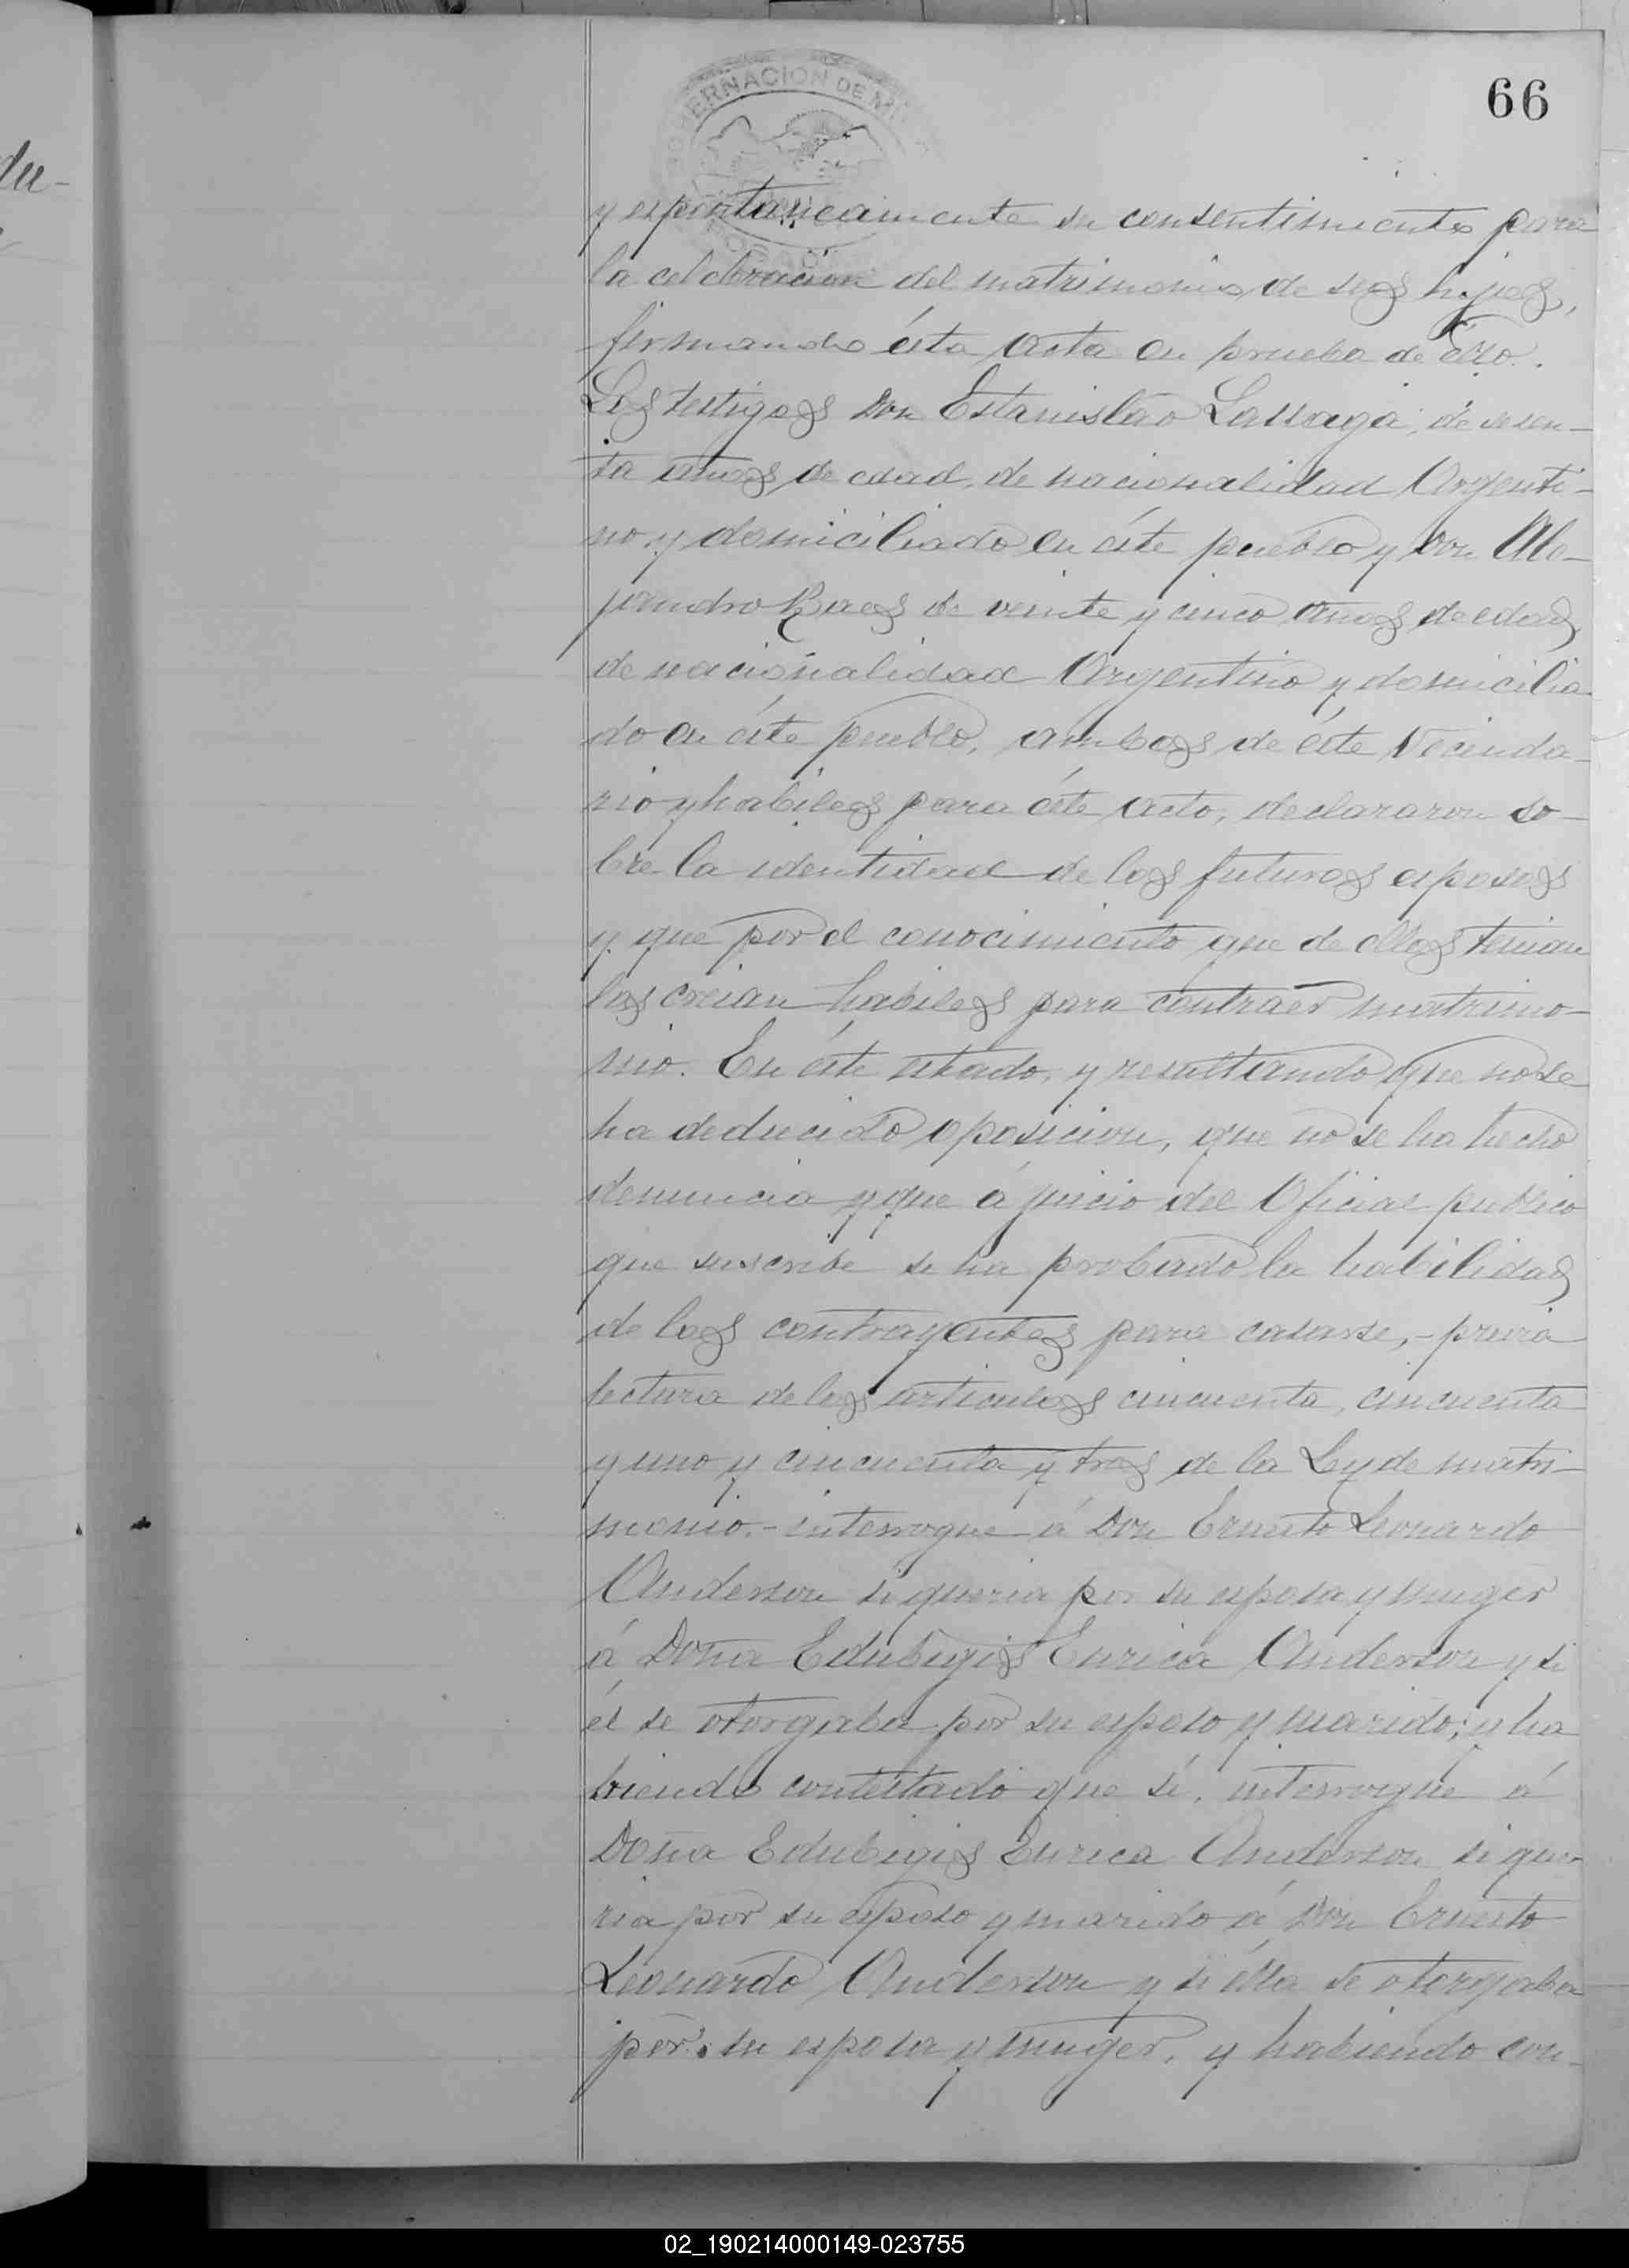 66
GOBERNACION DE MI
y espontaneamente su consentimiento para
la celebracion del matrimonio de sus hijos,
firmando ésta acta en prueba de ello.
Los testigos Don Estanislao Lassaga, de sesen-
ta años de edad, de nacionalidad Argenti-
no y domiciliado en éste pueblo y Don Ale-
jandro Baes de veinte y cinco años de edad,
de nacionalidad Argentino y domicilia-
do en éste pueblo, ambos de éste Vecinda-
rio y habiles para éste acto, declararon so-
bre la identidad de los futuros esposos
y que por el conocimiento que de ellos tenian
los creian habiles para contraer matrimo-
nio. En éste estado, y resultando que no se
ha deducido oposicion, que no se ha hecho
denuncia y que á juicio del Oficial publico
que suscribe se ha probado la habilidad
de los contrayentes para casarse,- previa
lectura de los articulos cincuenta, cincuenta
y uno y cincuenta y tres de la Ley de matri-
monio.- interrogué á Don Ernesto Leonardo
Anderson si queria por su esposa y muger
á Doña Edubigis Enrica Anderson y si
él se otorgaba por su esposo y marido; y ha
biendo contestado que sí, interrogué á
Doña Edubigis Enrica Anderson si que-
ria por su esposo y marido á Don Ernesto
Leonardo Anderson y si élla se otorgaba
por su esposa y muger, y habiendo con-
du-
02_190214000149-023755